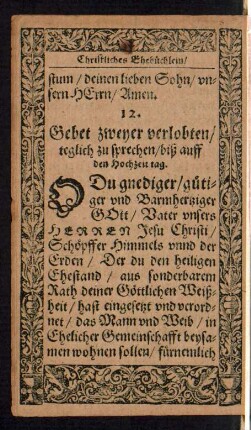 Christliches Ehebüchlein/
stum / deinen lieben Sohn / vn-
sern HErrn / Amen.
12.
Gebet zweyer verlobten /
teglich zu sprechen / biß auff
den Hochzeu tag.
O Du gnediger / güti-
ger vnd Barmhertziger
GOtt / Vater vnsers
HERREN Jesu Christi /
Schöpffer Himmels vnnd der
Erden / Der du den heiligen
Ehestand / aus sonderbarem
Rath deiner Göttlichen Weiß-
heit / hast eingesetzt vnd verord-
net / das Mann vnd Weib / in
Ehelicher Gemeinschafft beysa-
men wohnen sollen / fürnemlich